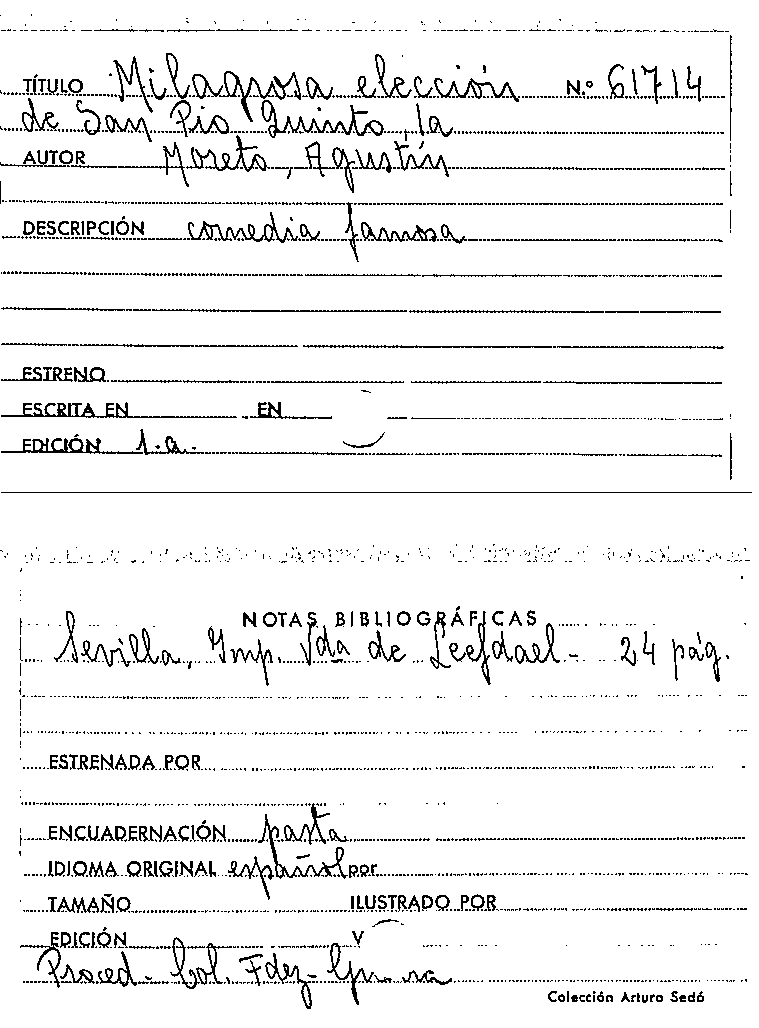 TÍTULO Milagrosa elección N.º 61714
de San Pio Quinto, la
AUTOR Moreto, Agustín
DESCRIPCIÓN comedia famosa
ESTRENO
ESCRITA EN EN
EDICIÓN s.a.
NOTAS BIBLIOGRÁFICAS
Sevilla, Imp. Vda de Leefdael - 24 pág.
ESTRENADA POR
ENCUADERNACIÓN pasta
IDIOMA ORIGINAL español por
TAMAÑO ILUSTRADO POR
EDICIÓN V
Proced. Col. Fdez-
Colección Arturo Sedó